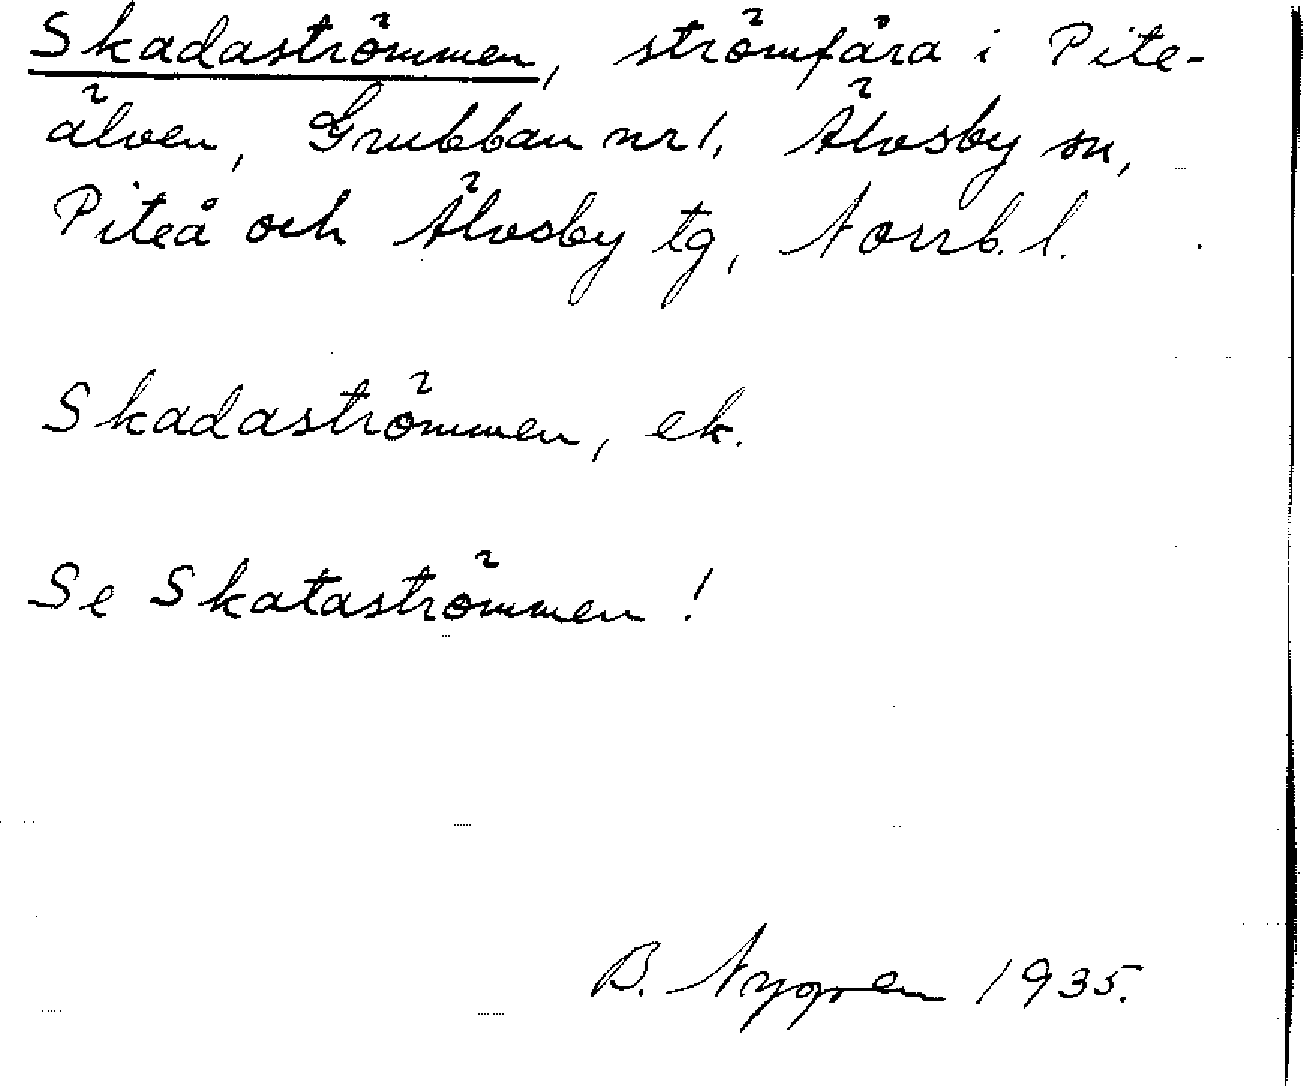 Skadaströmmen, strömfåra i Pite-
älven, Grubban nr 1, Älvsby sn,
Piteå och Älvsby tg, Norrb. l.
Skadaströmmen, ek.
Se Skataströmmen!
B. Nygren 1935.